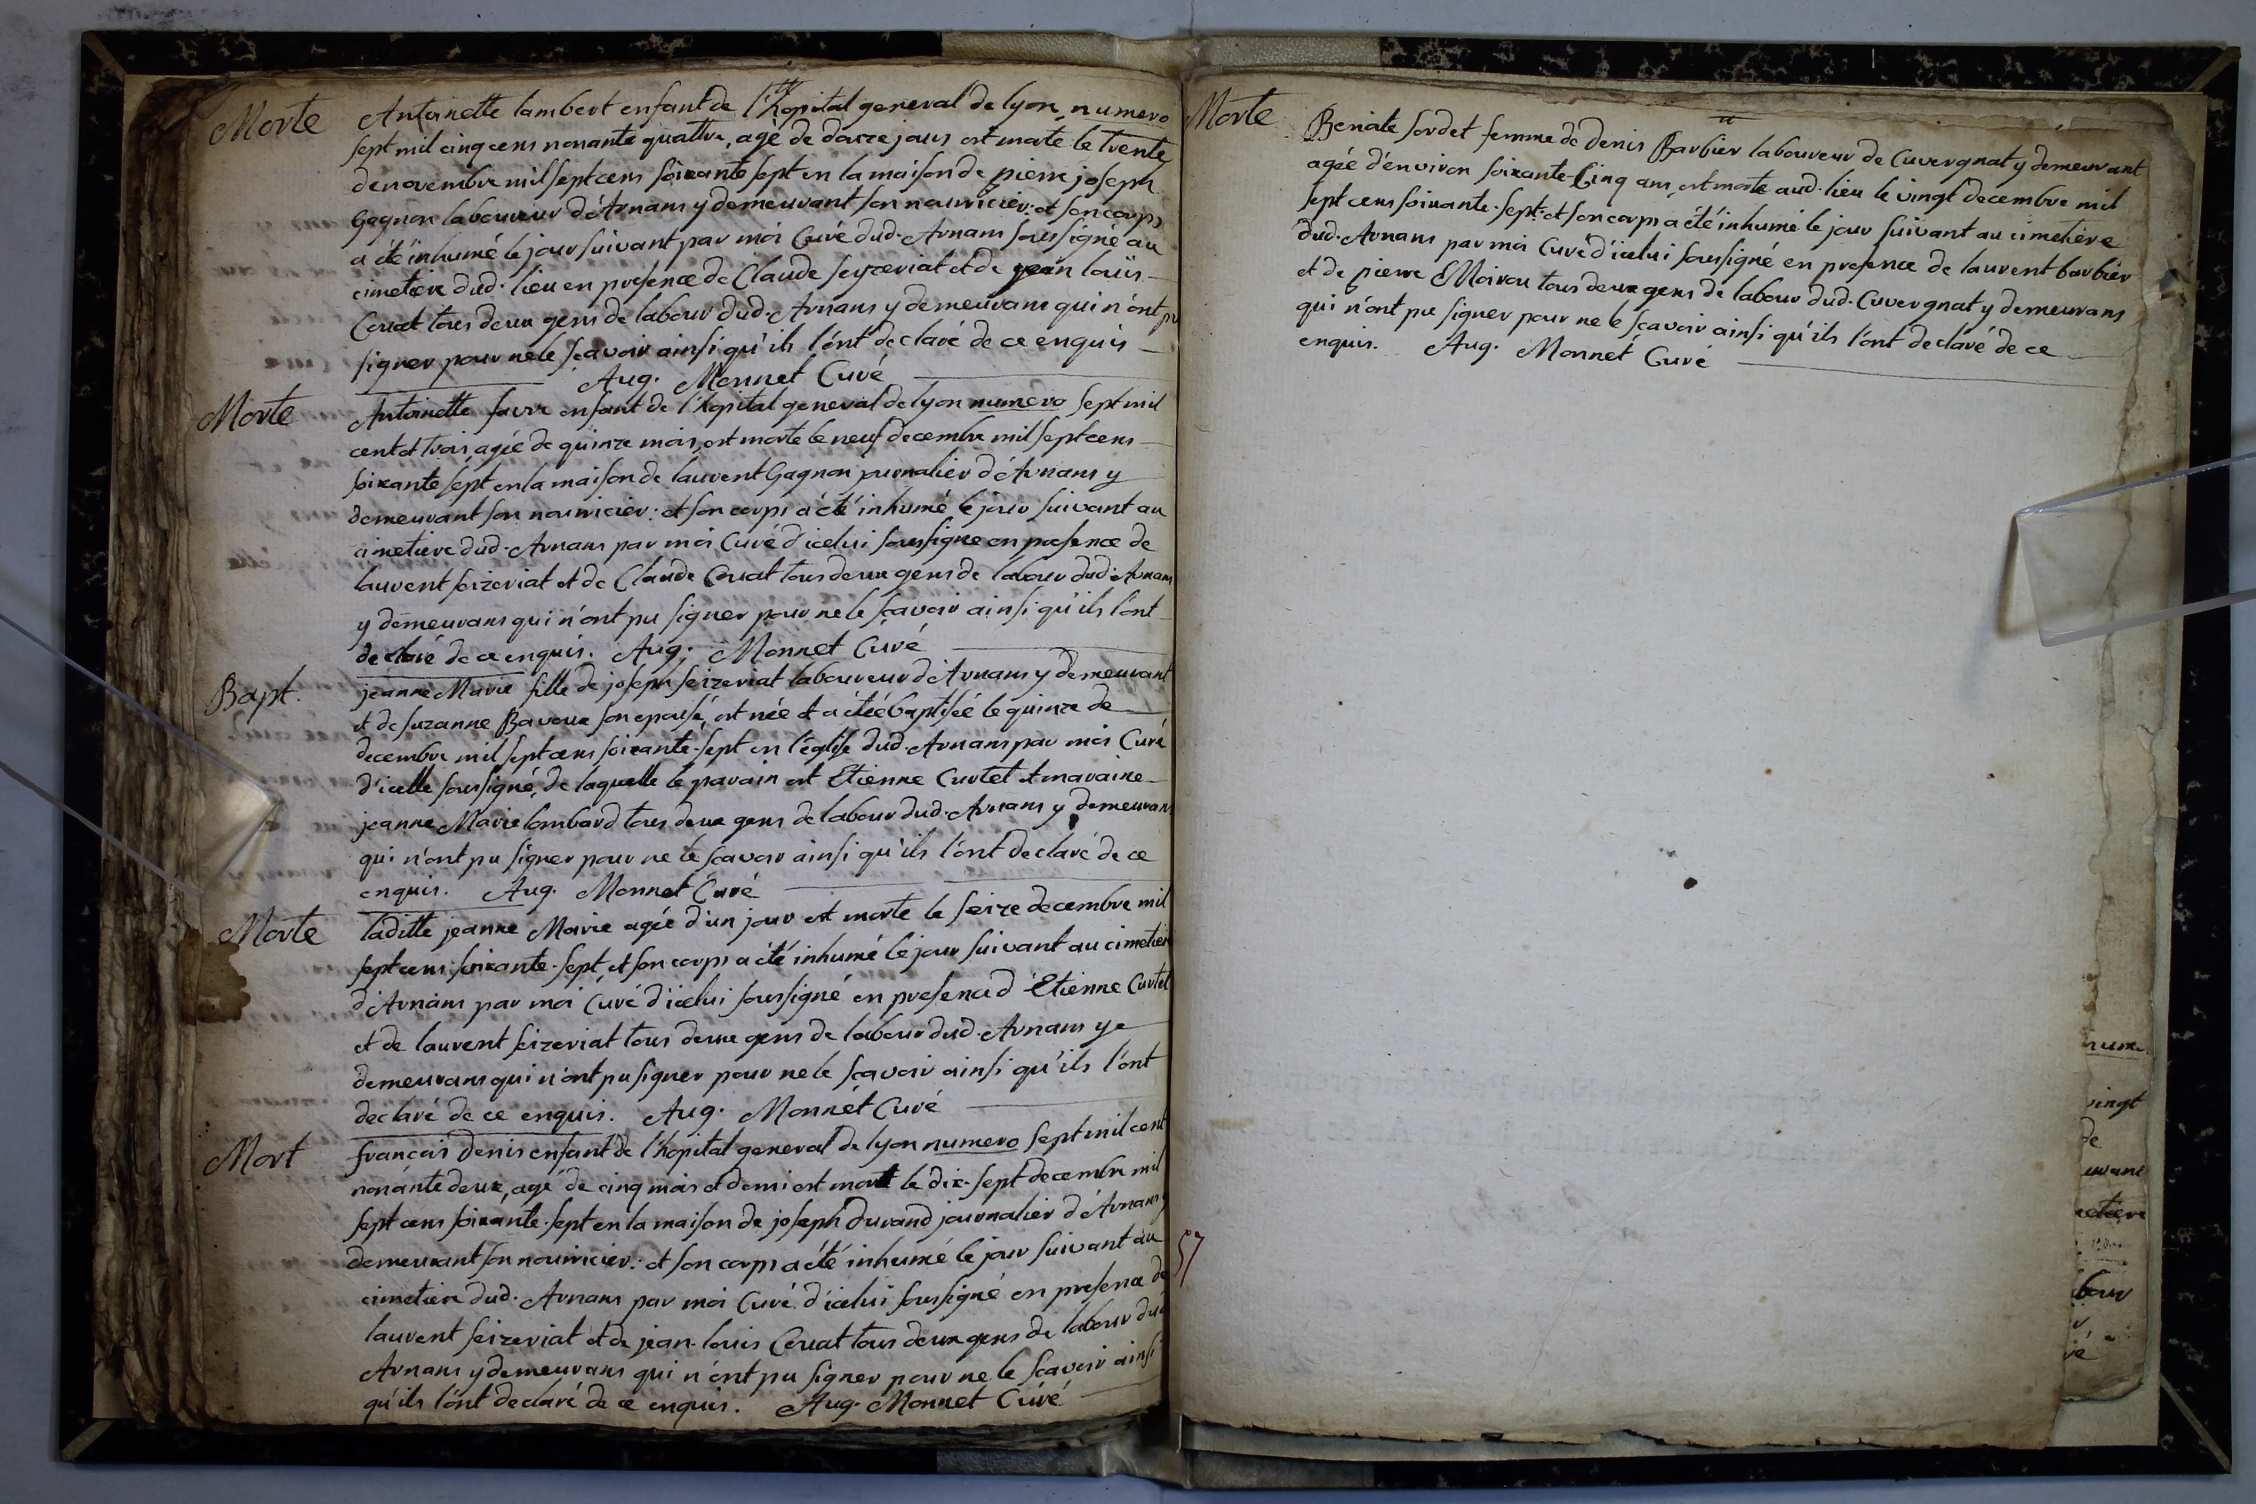 Morte Antoinette lambert enfant de l'hopital general de lyon, numero
sept mil cinq cens nonante quattre, agé de douze jours est morte le trente
de novembre mil sept cens soixante sept en la maison de pierre joseph
Gagnon laboureur d'Arnans y demeurant son nourricier: et son corps
a été inhumé le jour suivant par moi Curé dud. Arnans soussigné au
cimetiere dud. lieu en presence de Claude seyzeriat et de jean louis
Couat tous deux gens de labour dud. Arnans y demeurans qui n'ont pu
signer pour ne le scavoir ainsi qu'ils l'ont declaré de ce enquis
Aug. Monnet Curé
Morte Antoinette favre enfant de l'hopital general de lyon numero sept mil
cent et trois, agée de quinze mois, est morte le neuf decembre mil sept cens
soixante sept en la maison de laurent Gagnon journalier d'Arnans y
demeurant son nourricier: et son corps a été inhumé le jour suivant au
cimetiere dud. Arnans par moi Curé d'icelui soussigné en presence de
laurent seizeriat et de Claude Couat tous deux gens de labour dud. Arnans
y demeurans qui n'ont pu signer pour ne le scavoir ainsi qu'ils l'ont
declaré de ce enquis. Aug. Monnet Curé
Bapt. jeanne Marie fille de joseph seizeriat laboureur d'Arnans y demeurant
et de suzanne Bavoux son epouse, est née et a été baptisée le quinze de
decembre mil sept cens soixante-sept en l'église dud. Arnans par moi Curé
d'icelle soussigné, de laquelle le parain est Etienne Curtet et maraine
jeanne Marie lombard tous deux gens de labour dud. Arnans y demeurans
qui n'ont pu signer pour ne le scavoir ainsi qu'ils l'ont declaré de ce
enquis. Aug. Monnet Curé
Morte laditte jeanne Marie agée d'un jour est morte le seize decembre mil
sept cens soixante-sept, et son corps a été inhumé le jour suivant au cimetiere
d'Arnans par moi Curé d'icelui soussigné en presence d'Etienne Curtet
et de laurent seizeriat tous deux gens de labour dud. Arnans y
demeurans qui n'ont pu signer pour ne le scavoir ainsi qu'ils l'ont
declaré de ce enquis. Aug. Monnet Curé
Mort francois denis enfant de l'hopital general de lyon numero sept mil cent
nonante deux, agé de cinq mois et demi est mort le dix-sept decembre mil
sept cens soixante-sept en la maison de joseph durand journalier d'Arnans y
demeurant son nourricier: et son corps a été inhumé le jour suivant au
cimetiere dud. Arnans par moi Curé d'icelui soussigné en presence de
laurent seizeriat et de jean-louis Couat tous deux gens de labour dud.
Arnans y demeurans qui n'ont pu signer pour ne le scavoir ainsi
qu'ils l'ont declaré de ce enquis. Aug. Monnet Curé
Morte Benoite sordet femme de denis Barbier laboureur de Cuvergnat y demeurant
agée d'environ soixante-Cinq ans, est morte aud. lieu le vingt decembre mil
sept cens soixante-sept: et son corps a été inhumé le jour suivant au cimetiere
dud. Arnans par moi Curé d'icelui soussigné en presence de laurent barbier
et de pierre Moirou tous deux gens de labour dud. Cuvergnat y demeurans
qui n'ont pu signer pour ne le scavoir ainsi qu'ils l'ont declaré de ce
enquis. Aug. Monnet Curé
57
vingt
de